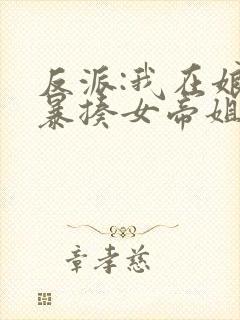 反派:我在娘
暴揍女帝姐
章孝慈